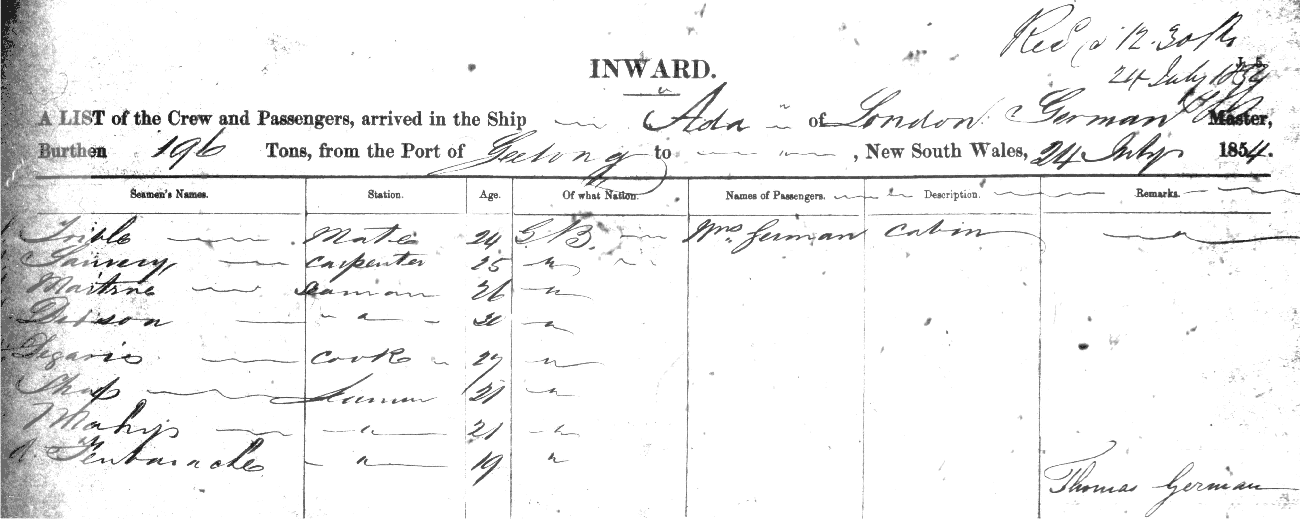 Recd @ 12.30 Pm
24 July 1854
INWARD.
A LIST of the Crew and Passengers, arrived in the Ship Ada of London German Master,
Burthen 196 Tons, from the Port of Geelong to , New South Wales, 24 July 1854.
Seamen's Names. Station. Age. Of what Nation. Names of Passengers. Description. Remarks.
Mate 24 G B. Mrs German Cabin
Carpenter 25 "
Seaman 26 "
Dobson " "
Degaris Cook 27 "
Seaman 21 "
" 21 "
" 19 "
Thomas German